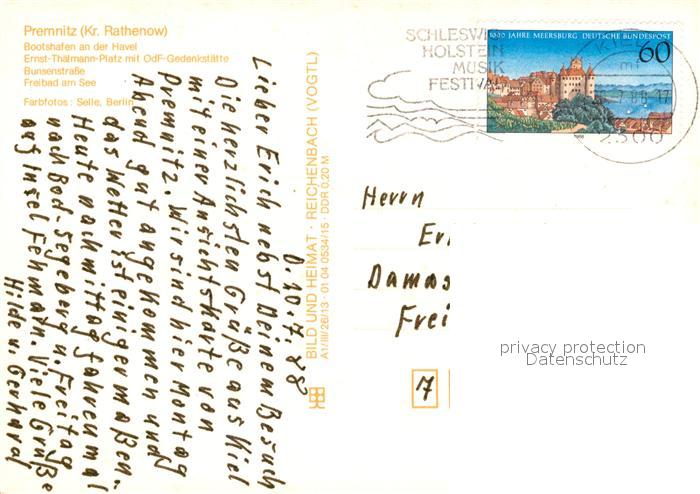 Premnitz (Kr. Rathenow)
Bootshafen an der Havel
Ernst-Thälmann-Platz mit OdF-Gedenkstätte
Bunsenstraße
Freibad am See
Farbfotos: Selle, Berlin
BILD UND HEIMAT · REICHENBACH (VOGTL)
A1/III/26/13 · 01 04 0534/15 · DDR 0,20 M
SCHLESWIG
HOLSTEIN
MUSIK
FESTIVAL
1000 JAHRE MEERSBURG DEUTSCHE BUNDESPOST
60
1988
KIEL
2300
D. 10.7.88
Lieber Erich nebst Deinem Besuch
Die herzlichsten Grüße aus Kiel
mit einer Ansichtskarte von
Premnitz. Wir sind hier Montag
Abend gut angekommen und
das Wetter ist einigermaßen.
Heute nachmittag fahren mal
nach Bad. Segeberg u. Freitag
auf Insel Fehmarn. Viele Grüße
Hilde u. Gerhard
Herrn
Er
Damas
Frei
7
privacy protection
Datenschutz